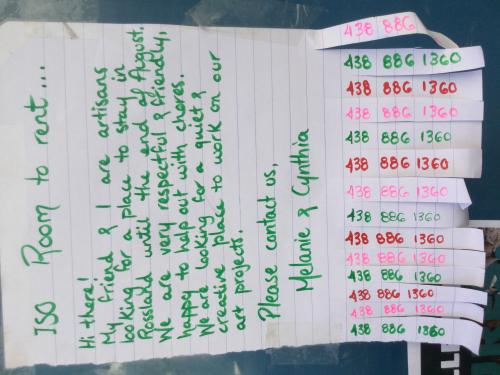 ISO Room to rent...
Hi there!
My friend & I are artisans
looking for a place to stay in
Rossland until the end of August.
We are very respectful & friendly,
happy to help out with chores.
We are looking for a quiet &
creative place to work on our
art projects.
Please contact us,
Melanie & Cynthia
438 886
438 886 1360
438 886 1360
438 886 1360
438 886 1360
438 886 1360
438 886 1360
438 886 1360
438 886 1360
438 886 1360
438 886 1360
438 886 1360
438 886 1360
438 886 1360